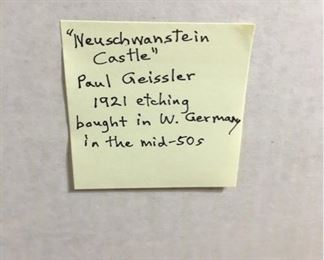 "Neuschwanstein
Castle"
Paul Geissler
1921 etching
bought in W. Germany
in the mid-50s